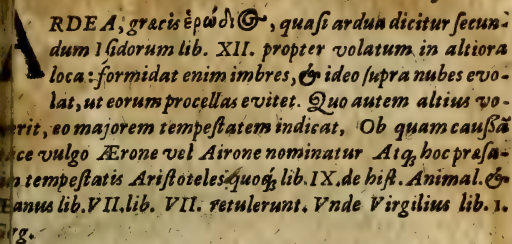 ARDEA, græcis ἐρώδιος, quaſi ardua dicitur ſecun-
dum Iſidorum lib. XII. propter volatum in altiora
loca: formidat enim imbres, & ideo ſupra nubes evo-
lat, ut eorum procellas evitet. Quo autem altius vo-
erit, eo majorem tempeſtatem indicat, Ob quam cauſſã
vulgo Ærone vel Airone nominatur Atq; hoc præſa-
tempeſtatis Ariſtoteles quoq; lib. IX. de hiſt. Animal. &
anus lib. VII. lib. VII. retulerunt. Vnde Virgilius lib. 1.